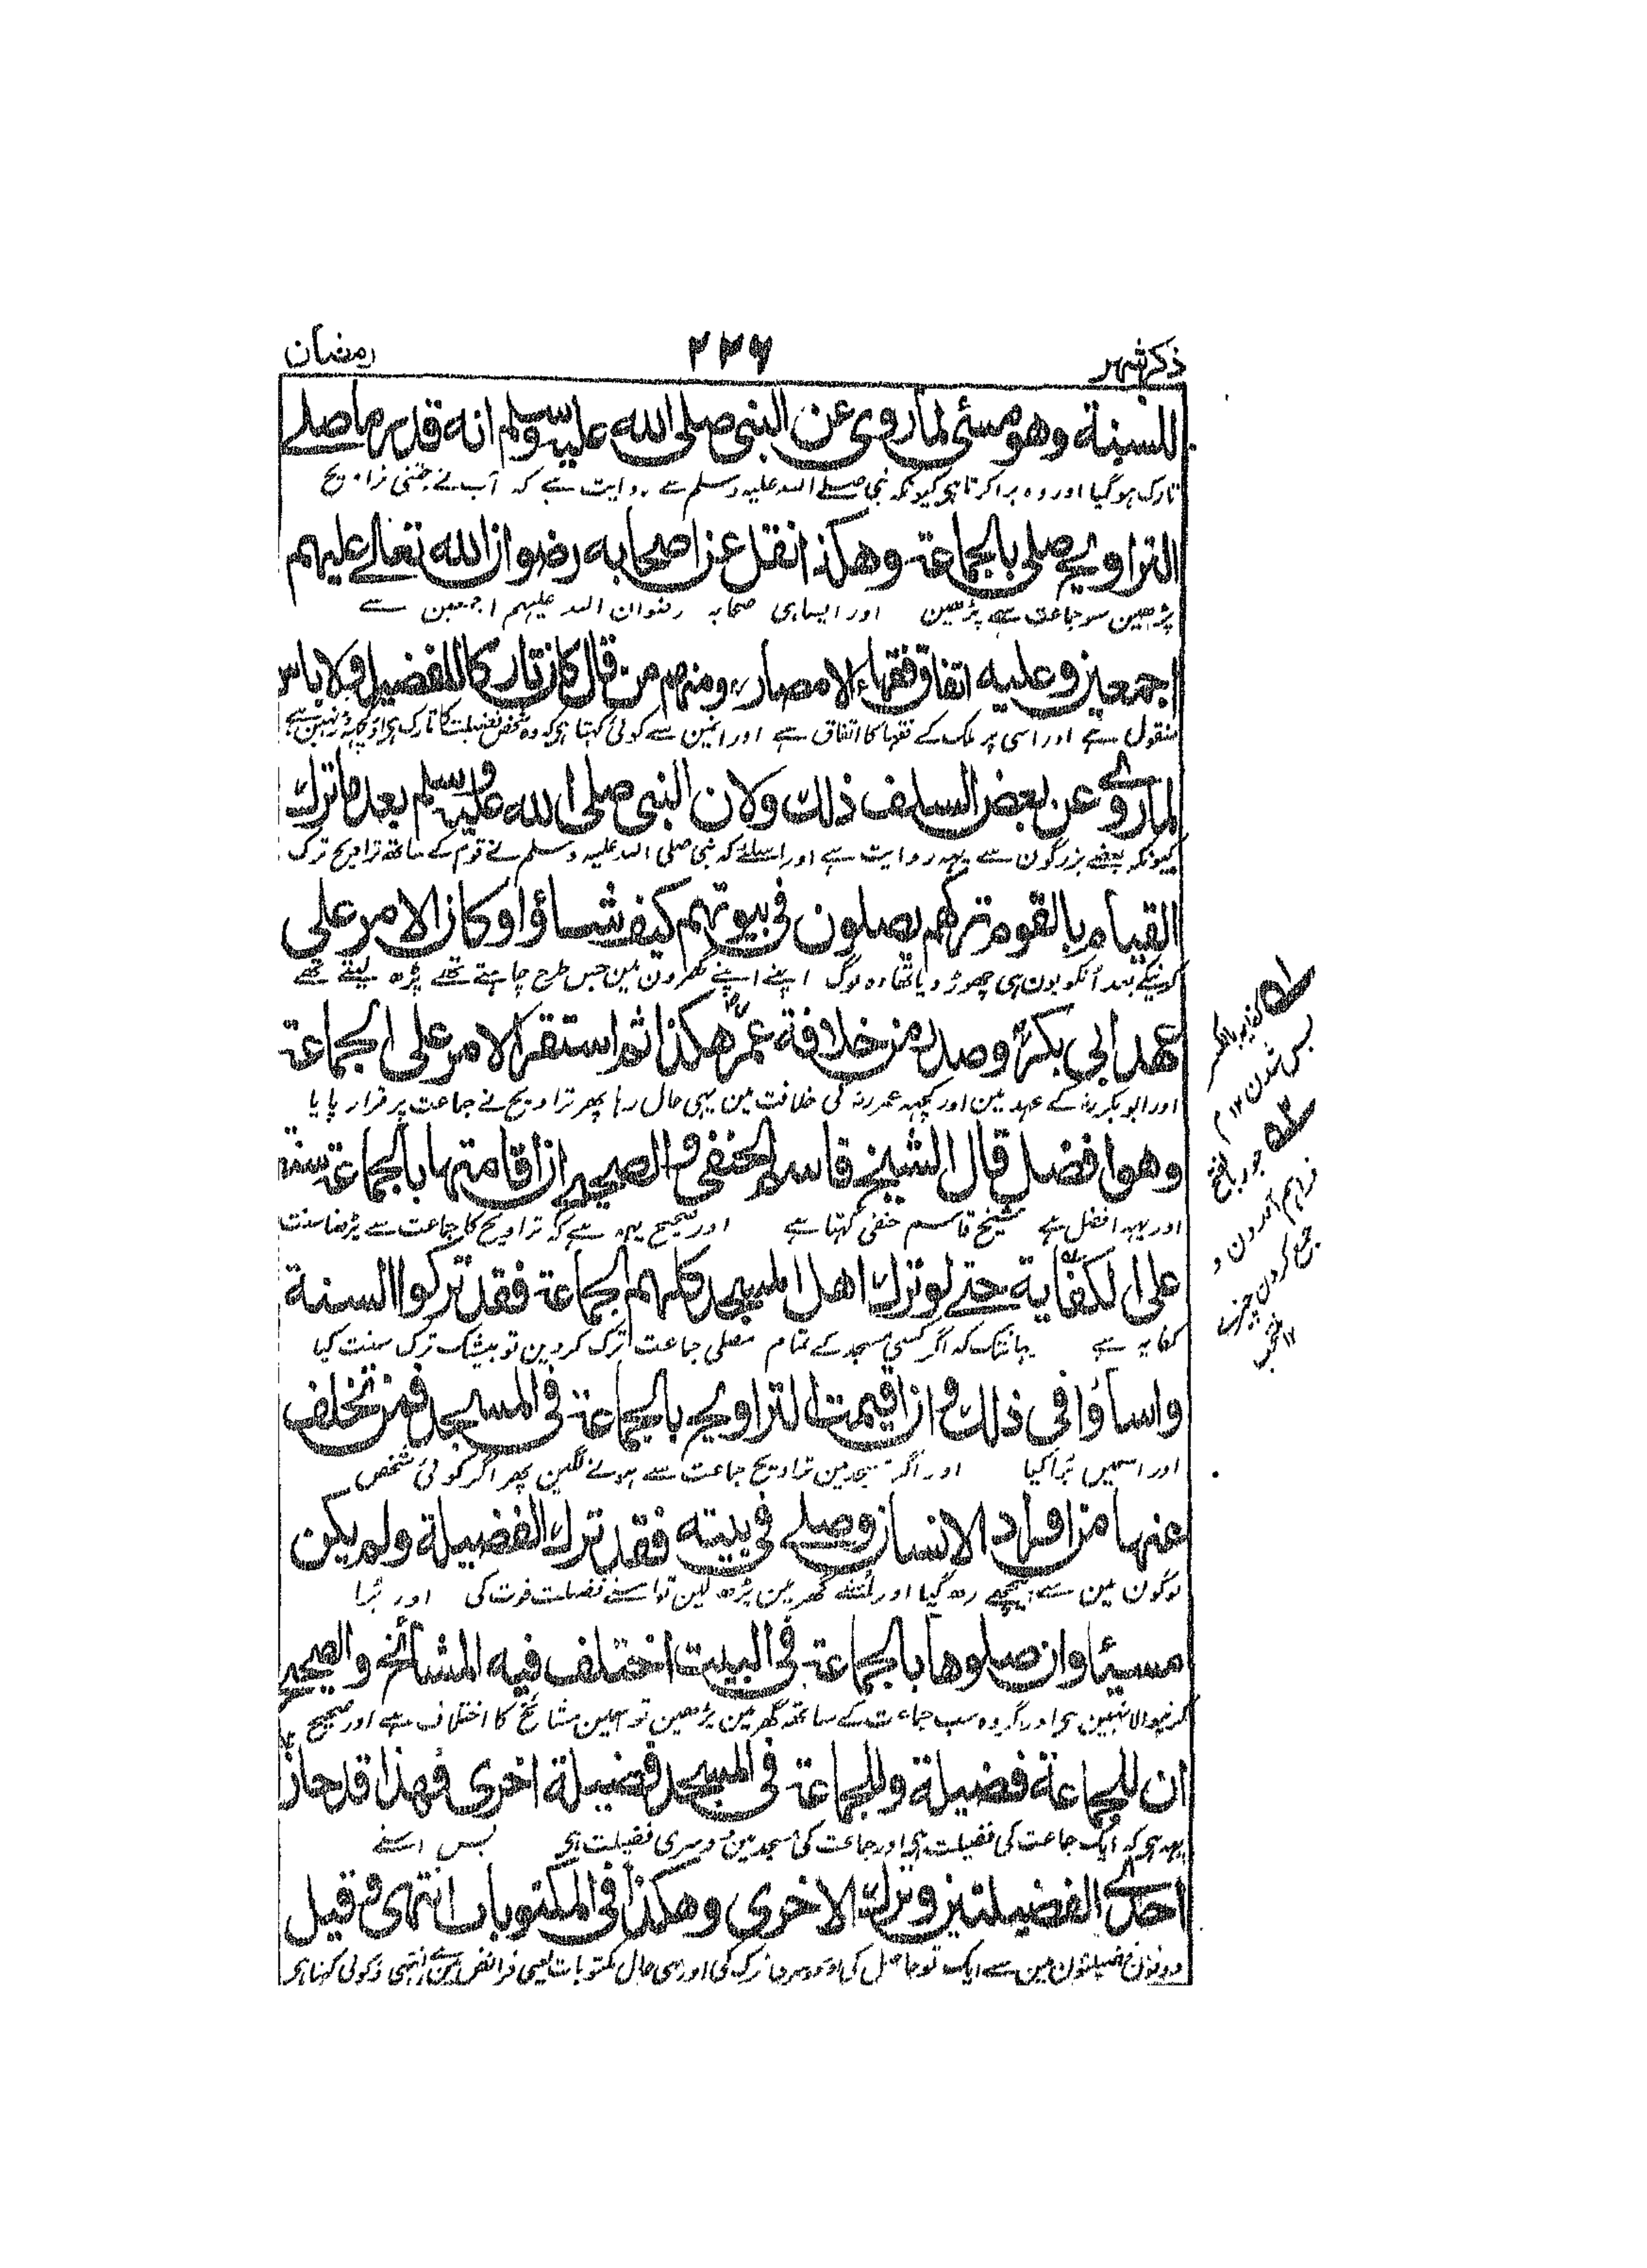 ذكر شهر ۲۲۶ رمضان
للسنة وهو مسئى لما روى عن النبى صلى الله عليه وسلم انه قدر ما صلے
تارک ہوگیا اور وہ برا کرتا ہی کیونکہ نبی صلے اللہ علیہ وسلم سے روایت ہے کہ آپ نے جتنی تراویح
التراويح صلى بالجماعة وهكذا نقل عن اصحابه رضوان الله تعالے عليهم
پڑھین سو جماعت سے پڑھین اور ایسا ہی صحابہ رضوان اللہ علیہم اجمعین سے
اجمعين وعليه اتفاق فقهاء الامصار ومنهم من قال كان تاركا للفضيلة ولا باس
منقول ہے اور اسی پر ملک کے فقہا کا اتفاق ہے اور انمین سے کوئی کہتا ہی کہ وہ شخص فضیلت کا تارک ہی اور کچھ ڈر نہین ہے
لما روے عن بعض السلف ذلك ولان النبى صلى الله عليه وسلم بعد ما ترك
کیونکہ بعضے بزرگون سے یہہ روایت ہے اور اسلئے کہ نبی صلی اللہ علیہ وسلم نے قوم کے ساتھ تراویح ترک
القيام بالقوم تركهم يصلون فى بيوتهم كيف شاؤا وكان الامر على
کرنیکے بعد اُنکو یون ہی چھوڑ دیا تھا وہ لوگ اپنے اپنے گھرون مین جس طرح چاہتے تھے پڑھ لیتے تھے
عهد ابى بكر وصدر من خلافة عمر هكذا ثم استقر الامر على الجماعة
اور ابو بکر رضہ کے عہد مین اور کچہہ عمر رضہ کی خلافت مین یہی حال رہا پھر تراویح نے جماعت پر قرار پایا
وهو افضل قال الشيخ قاسم الحنفى و الصحيح ان اقامتها بالجماعة سنة
اور یہہ افضل ہے شیخ قاسم حنفی کہتا ہے اور صحیح یہہ ہے کہ تراویح کا جماعت سے پڑھنا سنت
على الكفاية حتے لو ترك اهل المسجد كلهم الجماعة فقد تركوا السنة
کفایہ ہے یہانتک کہ اگر کسی مسجد کے تمام مصلی جماعت ترک کردین تو بیشک ترک سنت کیا
واساؤا فى ذلك و ان اقيمت التراويح بالجماعة فى المسجد فمن تخلف
اور اسمیں بُرا کیا اور اگر مسجد مین تراویح جماعت سے ہونے لگین پھر اگر کوئی شخص
عنها من افراد الانسان وصلے فى بيته فقد ترك الفضيلة ولم يكن
لوگون مین سے پیچھے رہ گیا اور اُسنے گھر مین پڑھ لین تو اسنے فضیلت فوت کی اور بُرا
مسيئا وان صلوها بالجماعة فى البيت اختلف فيه المشائخ والصحيح
کرنیوالا نہین ہی اور اگر وہ سب جماعت کے ساتھ گھر مین پڑھین تو اسمین مشائخ کا اختلاف ہے اور صحیح
ان للجماعة فضيلة وللجماعة فى المسجد فضيلة اخرى فهذا قد حاز
یہہ ہی کہ ایک جماعت کی فضیلت ہی اور جماعت کی مسجد مین دوسری فضیلت ہی بس اسنے
احدے الفضيلتين وترك الاخرى وهكذا فى المكتوبات انتهى و قيل
دونون فضیلتون مین سے ایک تو حاصل کی اور دوسری ترک کی اور یہی حال مکتوبات یعنی فرائض مین ہے انتہی و کوئی کہتا ہی
کفایہ بالکسر
بس شدن ۱۲ م
حوز بالفتح
فراہم آمدن و
جمع کردن چیزے
۱۲ منتخب